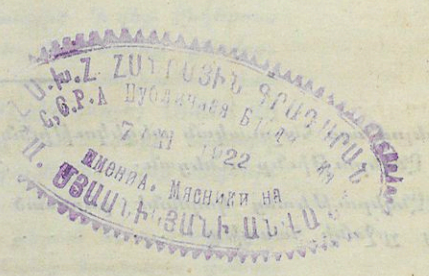 Հ.Ս.Խ.Հ. ՀԱՆՐԱՅԻՆ ԳՐԱԴԱՐԱՆ
С.С.Р.А Публичная
XI 1922
имени А. Мясники на
Ա. ՄՅԱՍՆԻԿՅԱՆԻ ԱՆՎԱՆ